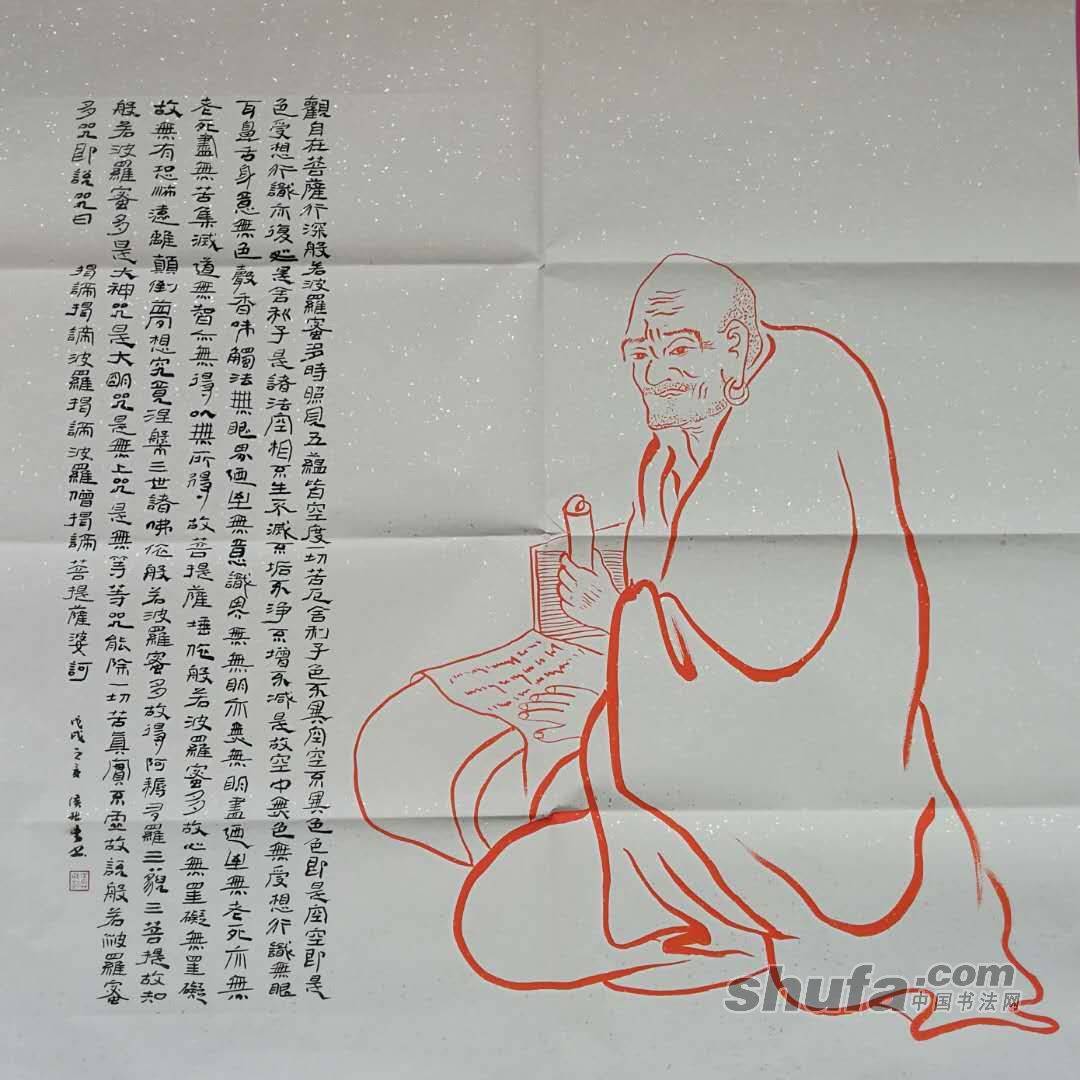 觀自在菩薩行深般若波羅蜜多時照見五蘊皆空度一切苦厄舍利子色不異空空不異色色即是空空即是
色受想行識亦復如是舍利子是諸法空相不生不滅不垢不淨不增不減是故空中無色無受想行識無眼
耳鼻舌身意無色聲香味觸法無眼界迺至無意識界無無明亦無無明盡迺至無老死亦無
老死盡無苦集滅道無智亦無得以無所得故菩提薩埵依般若波羅蜜多故心無罣礙無罣礙
故無有恐怖遠離顛倒夢想究竟涅槃三世諸佛依般若波羅蜜多故得阿耨多羅三藐三菩提故知
般若波羅蜜多是大神咒是大明咒是無上咒是無等等咒能除一切苦真實不虛故說般若波羅蜜
多咒即說咒曰 揭諦揭諦波羅揭諦波羅僧揭諦菩提薩婆訶
戊戌之夏
shufa.com
中国书法网